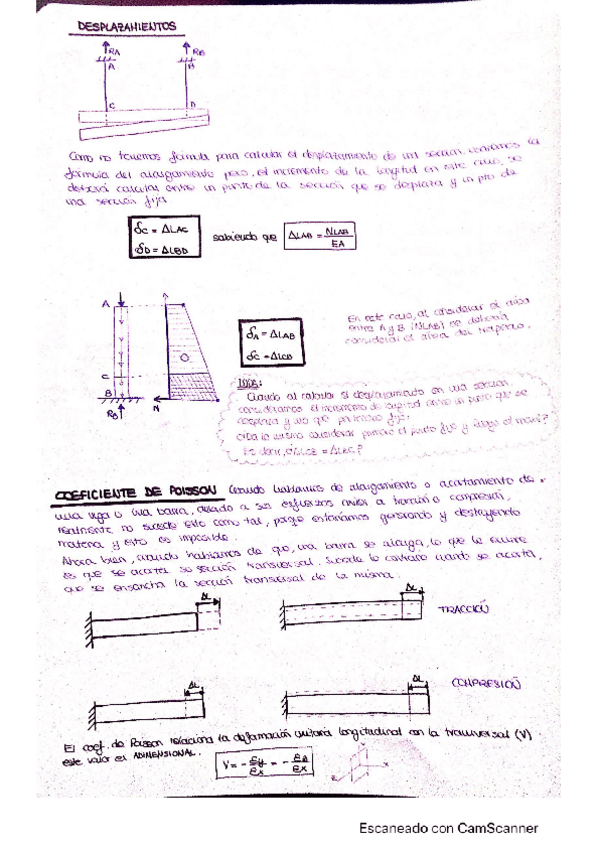 DESPLAZAMIENTOS
RA RB
A B
C D
Como no tenemos fórmula para calcular el desplazamiento de una sección, usamos la
fórmula del alargamiento pero, el incremento de la longitud en este caso, se
deberá calcular entre un punto de la sección que se desplaza y un pto de
una sección fija
δC = ΔLAC
δD = ΔLBD
sabiendo que
ΔLAB = NLAB / EA
A
C
B
RB
N
δA = ΔLAB
δC = ΔLCB
En este caso, al considerar el área
entre A y B (NLAB) se debería
considerar el área del trapecio.
Cuando al calcular el desplazamiento en una sección
consideramos el incremento de longitud entre un punto que se
desplaza y uno que permanece fijo:
¿Da lo mismo considerar primero el punto fijo y luego el móvil?
Es decir, ¿ΔLCB = ΔLBC?
COEFICIENTE DE POISSON Cuando hablamos de alargamiento o acortamiento de
una viga o una barra, debido a sus esfuerzos a tracción o compresión,
realmente no sucede esto como tal, porque estaríamos generando y destruyendo
materia y esto es imposible.
Ahora bien, cuando hablamos de que, una barra se alarga, lo que le ocurre
es que se acorta su sección transversal. Sucede lo contrario cuando se acorta,
que se ensancha la sección transversal de la misma.
ΔL ΔL
TRACCIÓN
ΔL ΔL
COMPRESIÓN
El coef. de Poisson relaciona la deformación unitaria longitudinal con la transversal (V)
este valor es ADIMENSIONAL.
V = - εy / εx = - εz / εx
Escaneado con CamScanner